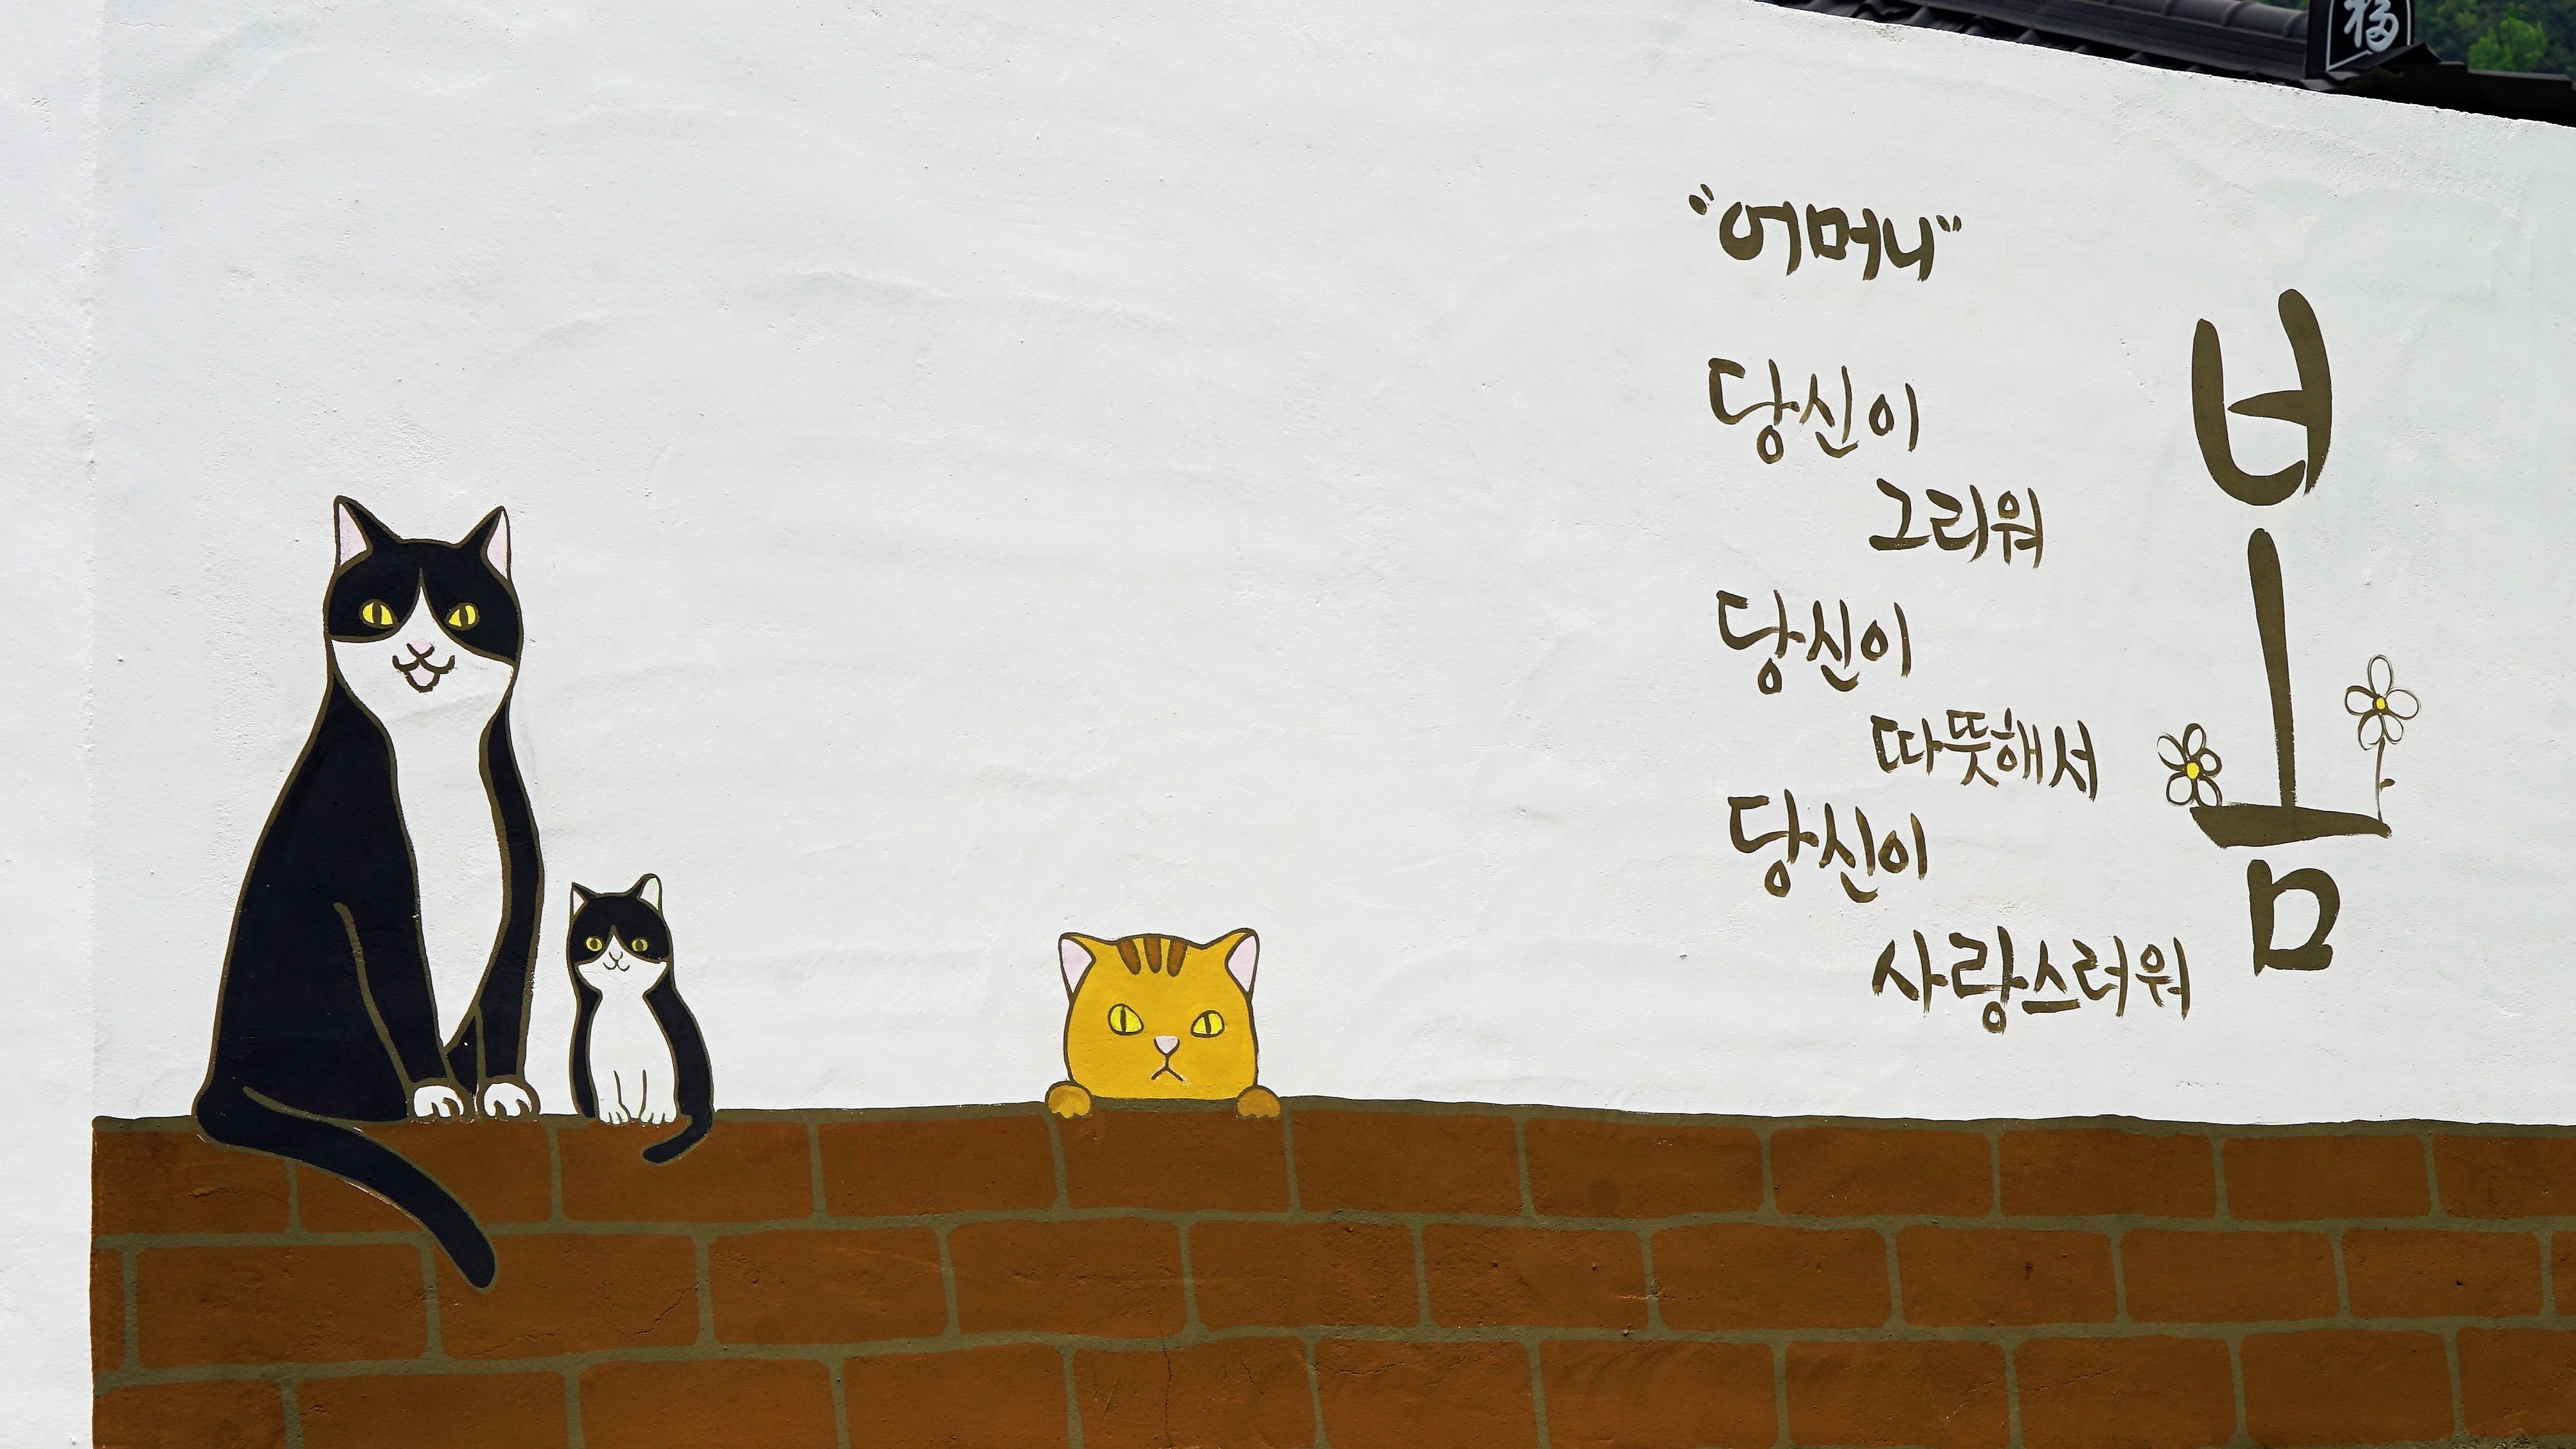 福
"어머니"
당신이
그리워
당신이
따뜻해서
당신이
사랑스러워
봄